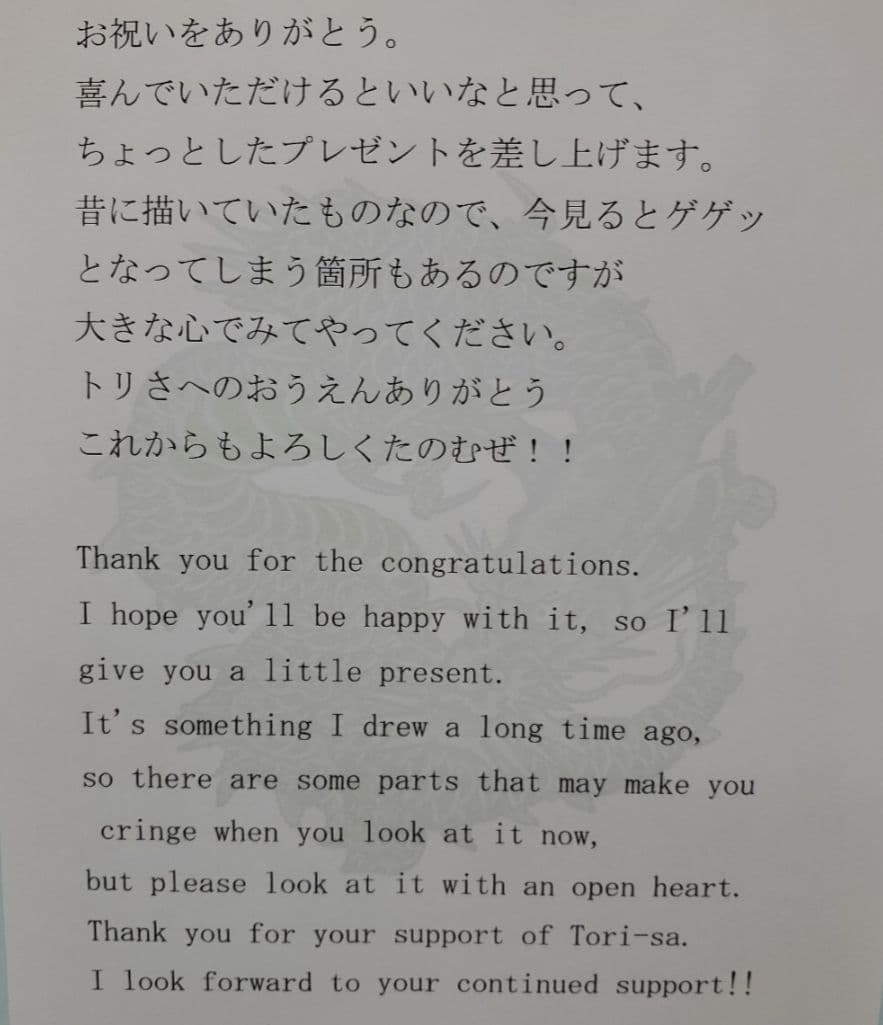 お祝いをありがとう。
喜んでいただけるといいなと思って、
ちょっとしたプレゼントを差し上げます。
昔に描いていたものなので、今見るとゲゲッ
となってしまう箇所もあるのですが
大きな心でみてやってください。
トリさへのおうえんありがとう
これからもよろしくたのむぜ！！
Thank you for the congratulations.
I hope you'll be happy with it, so I'll
give you a little present.
It's something I drew a long time ago,
so there are some parts that may make you
cringe when you look at it now,
but please look at it with an open heart.
Thank you for your support of Tori-sa.
I look forward to your continued support!!